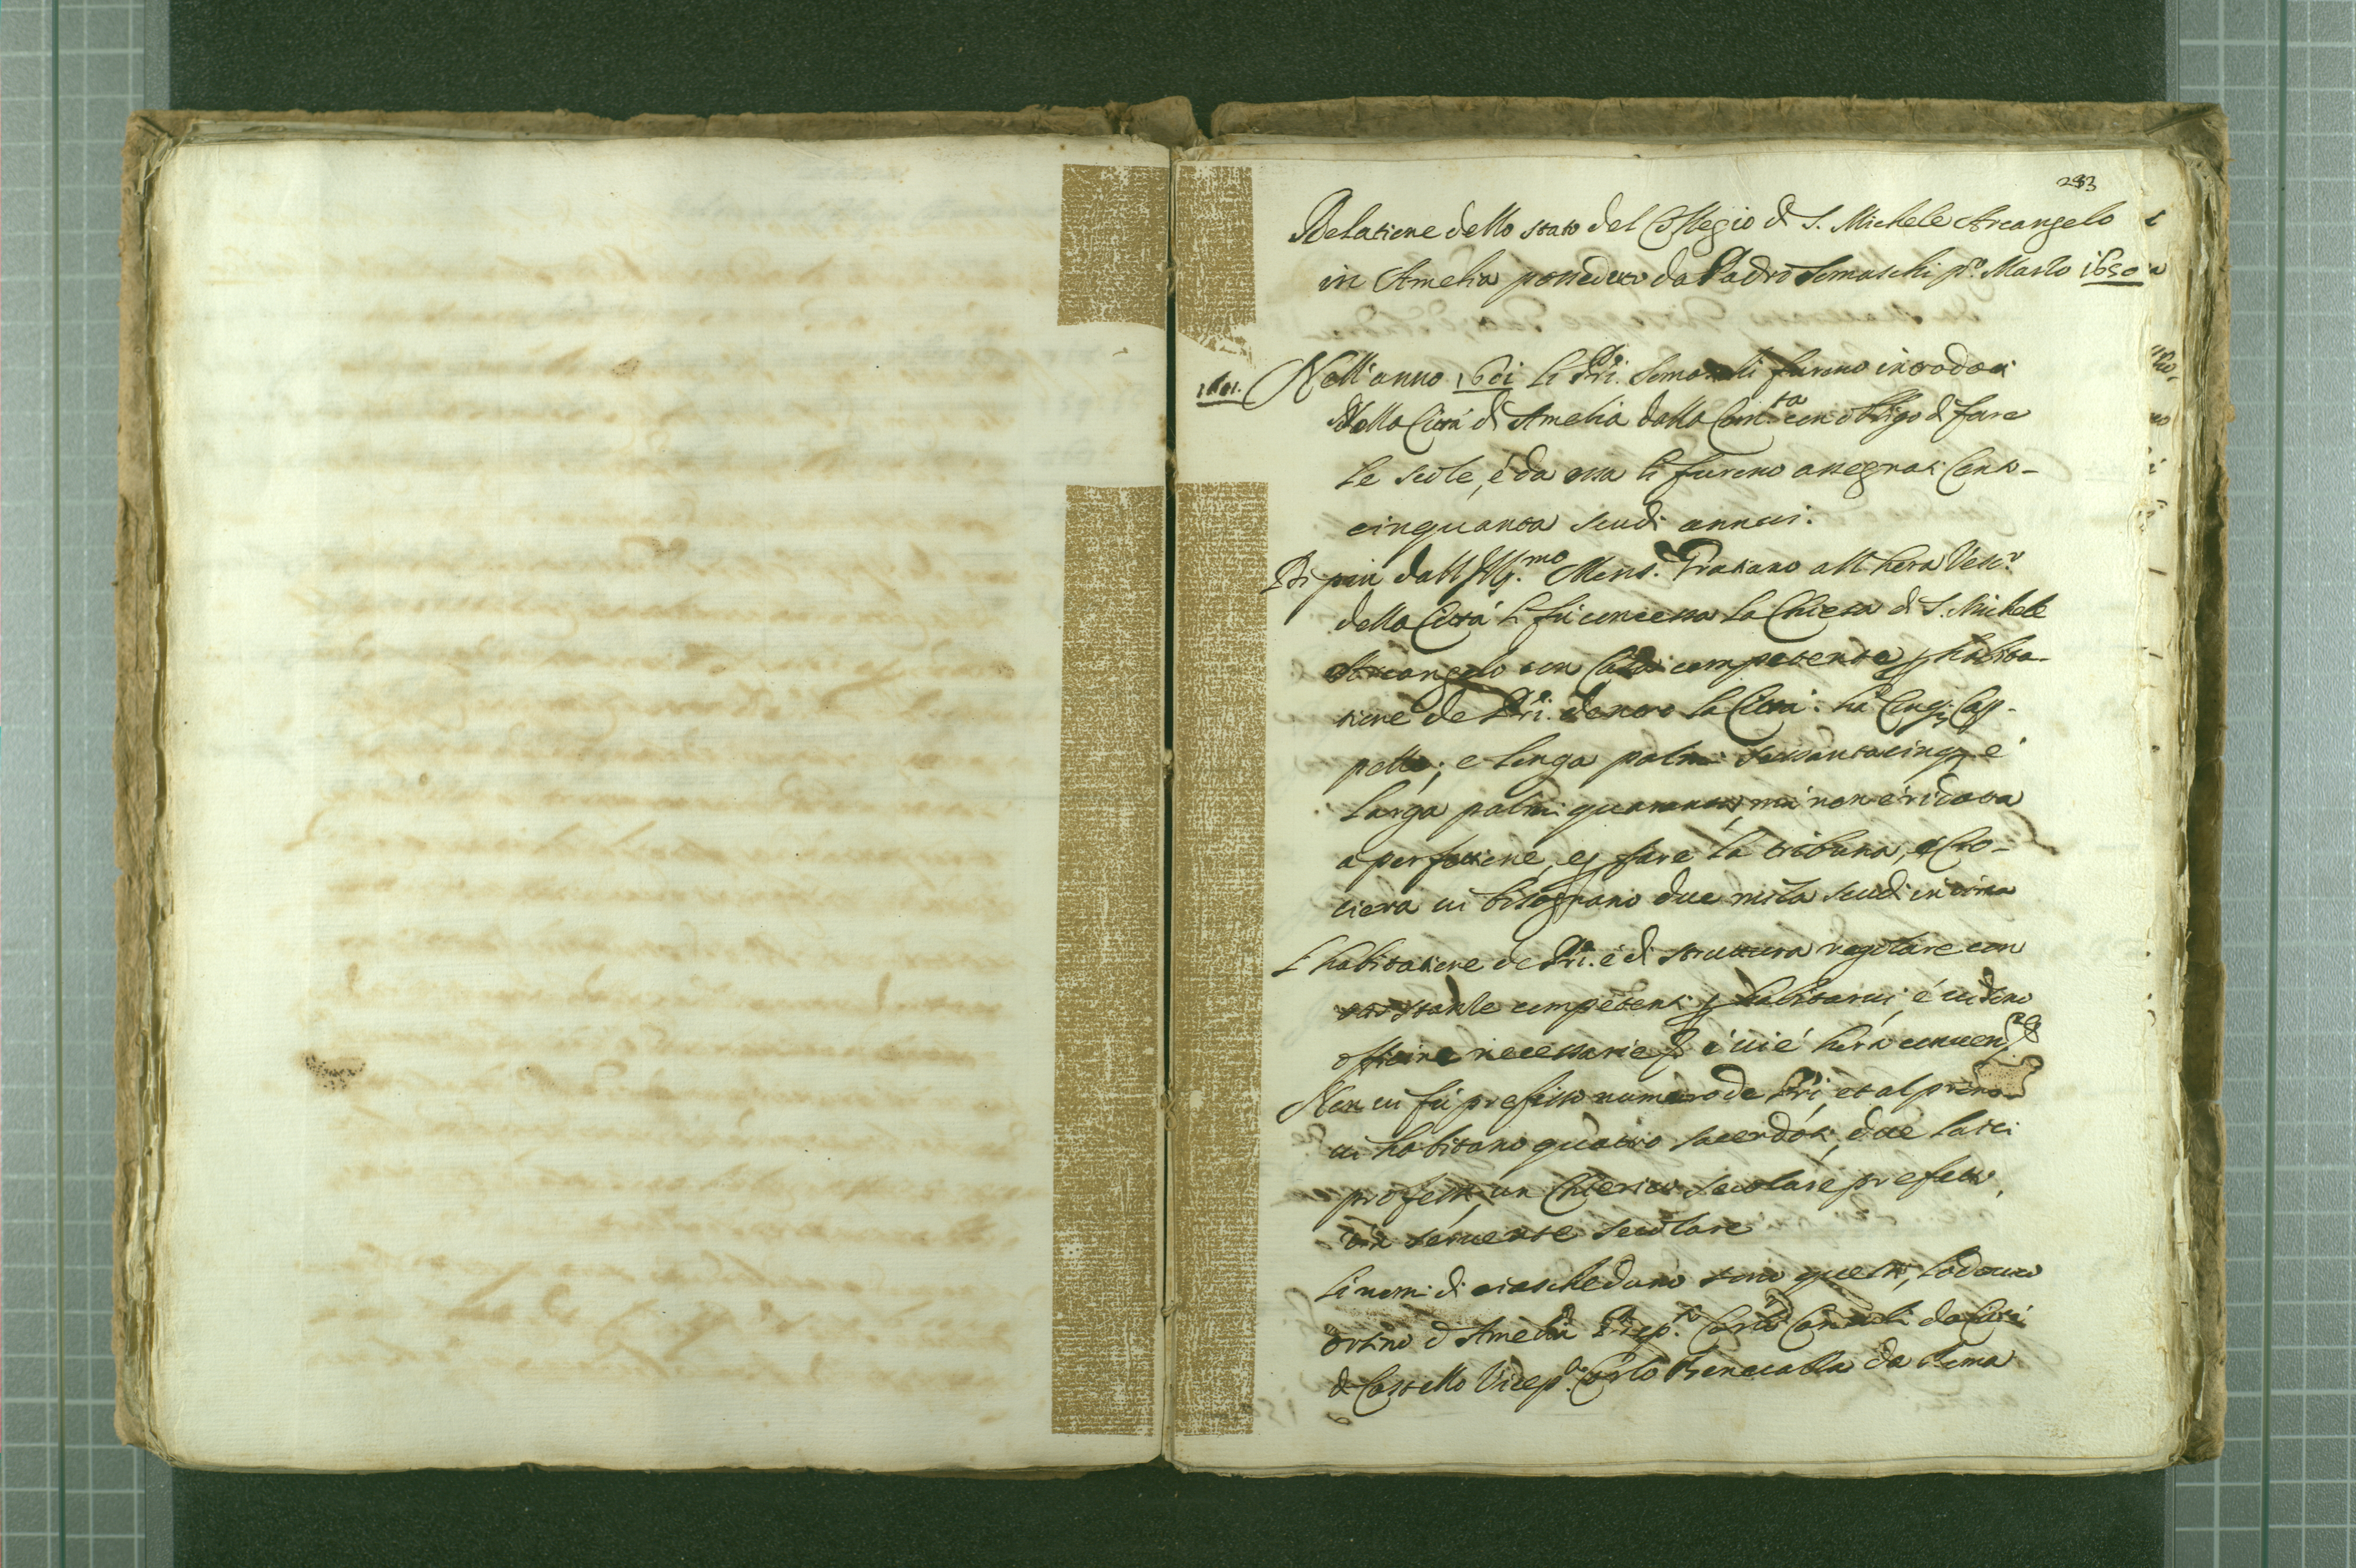 283
Relatione dello stato del Collegio di S. Michele Arcangelo
in Amelia posseduto da Padri Somaschi pº. Marzo 1650
1601. Nell'anno 1601 li Pri. Somaschi furono introdotti
Nella Città di Amelia dalla Com.ta con obligo di fare
le scole, é da essa li furono assegnati Cento-
cinquanta scudi annui.
Di più dall Ill.mo Mons.r Gratiano all hora Vesc.o
della Città li fù concessa la Chiesa di S. Michele
Arcangelo con Casa competente p habita-
tione de Pri. dentro la Città: hà Cinq; Cap-
pelle, e longa palmi sessantacinq; é
larga palmi quaranta, mà non é ridotta
a perfettione, e p fare la tribuna, e Cro-
ciera vi bisognano due mila scudi in circa
L'habitatione de Pri. é di struttura regolare con
stanze competenti p habitarvi, é vi sono
officine necessarie p
Non vi fù prefisso numero de Pri, et al pnte
vi habitano quattro sacerdoti, due laici
professi, un Chierico secolare prefetto,
un servente secolare
Li nomi di ciascheduno sono questi, Lodovico
d Amelia Prep.to Carlo da Città
di Castello Vicep.to Carlo Benecalla da Roma